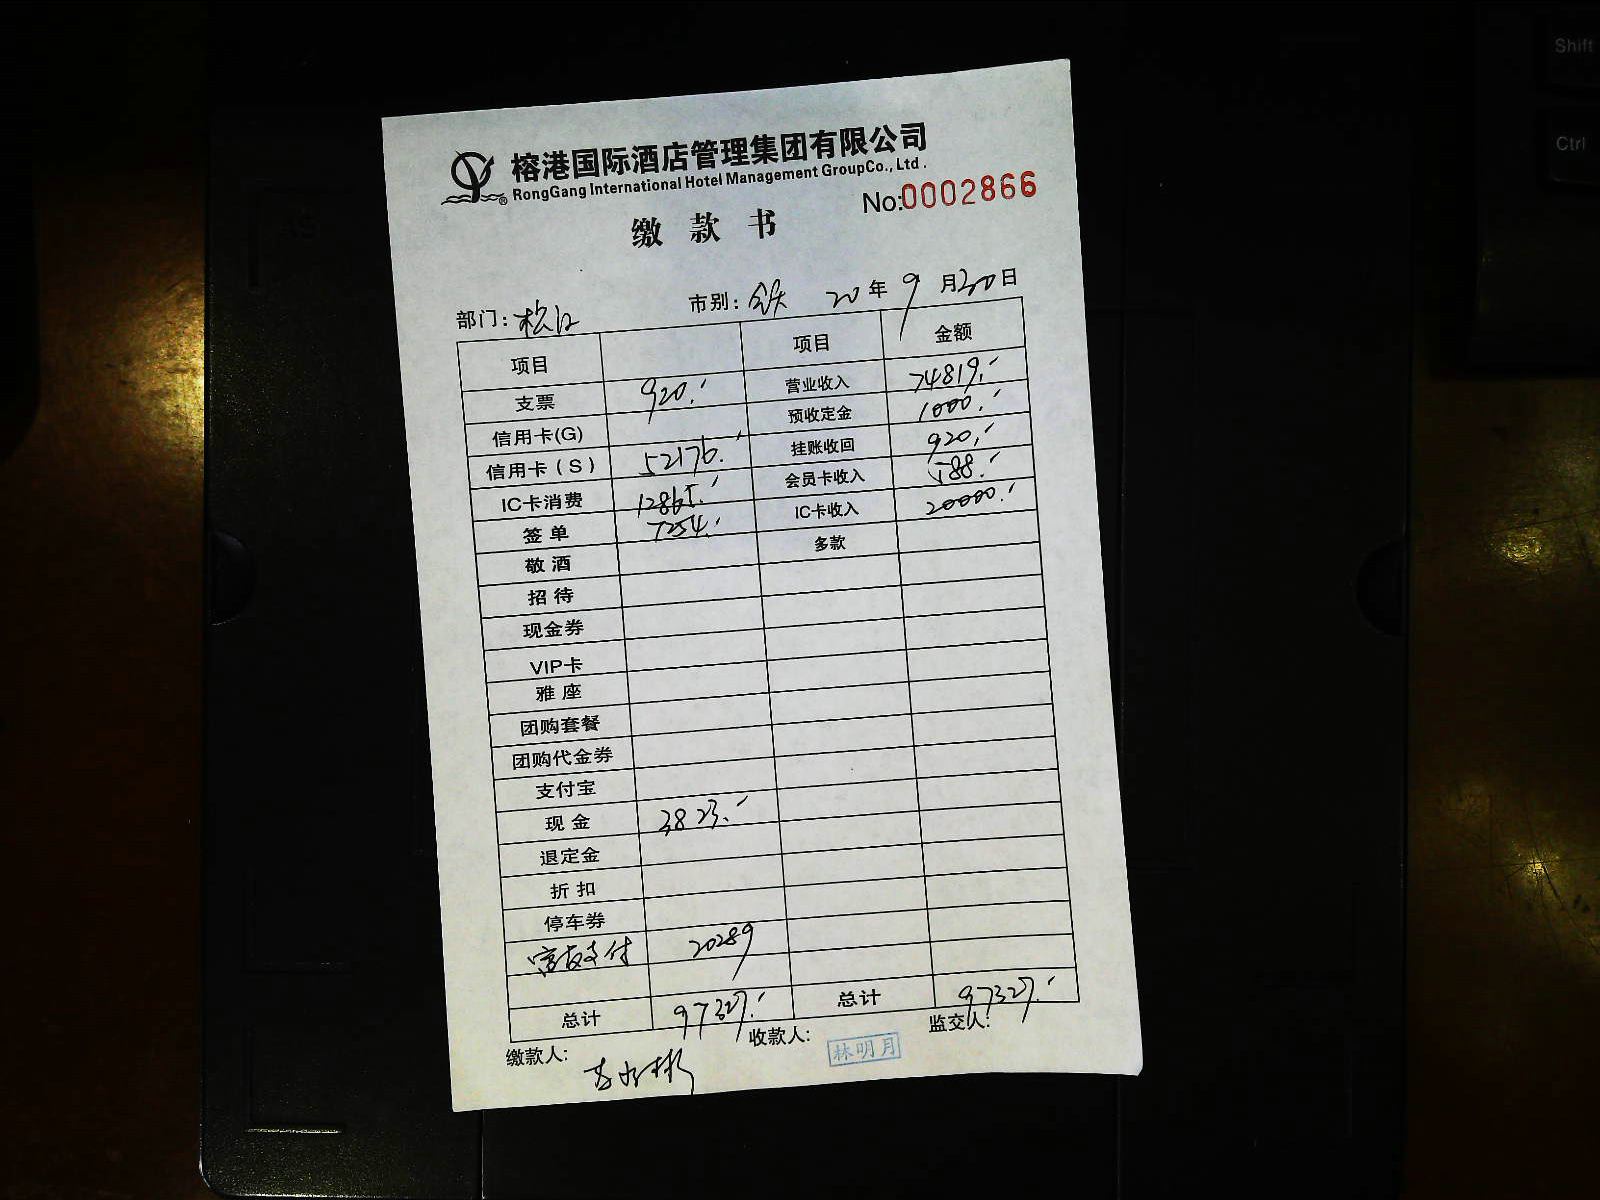 榕港国际酒店管理集团有限公司
RongGang International Hotel Management GroupCo., Ltd.
No:0002866
缴款书
部门: 松江 市别: 全天 20年 9月30日
项目 项目 金额
支票 920.- 营业收入 74819.-
信用卡(G) 预收定金 1000.-
信用卡(S) 52176.- 挂账收回 920.-
IC卡消费 12865.- 会员卡收入 588.-
签单 7254.- IC卡收入 20000.-
敬酒 多款
招待
现金券
VIP卡
雅座
团购套餐
团购代金券
支付宝
现金 3823.-
退定金
折扣
停车券
富友支付 20289
总计 97327.- 总计 97327.-
缴款人: 收款人: 林明月 监交人:
Shift
Ctrl